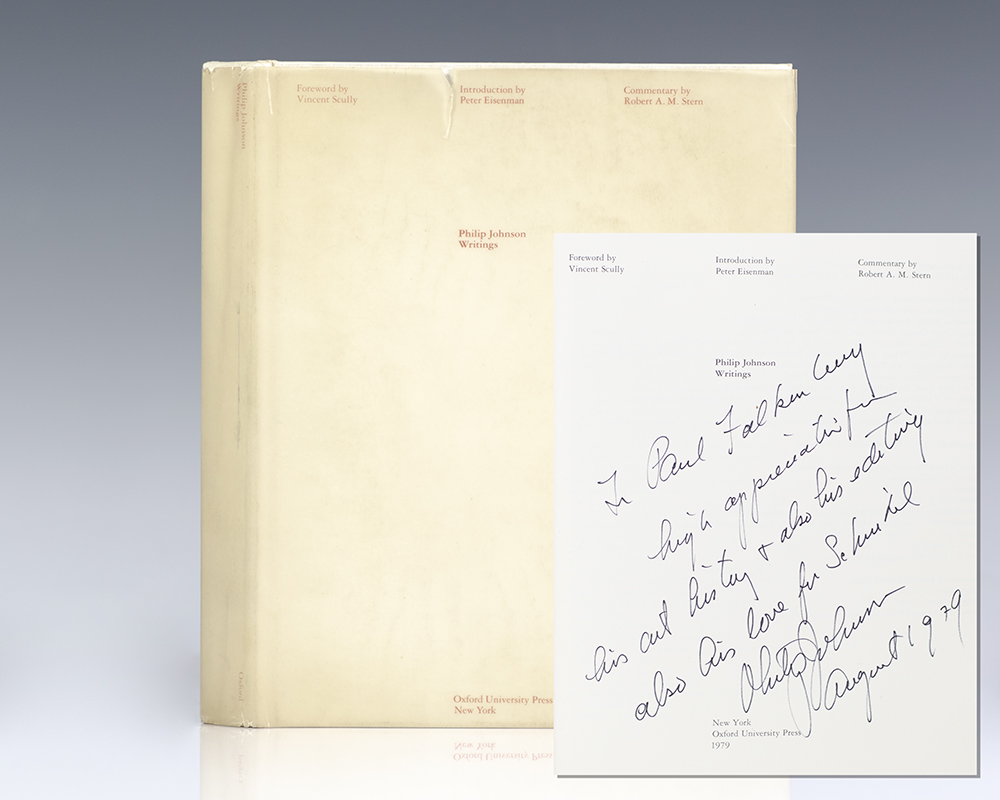 Philip Johnson
Writings
Oxford
Foreword by
Vincent Scully
Introduction by
Peter Eisenman
Commentary by
Robert A. M. Stern
Philip Johnson
Writings
Oxford University Press
New York
Foreword by
Vincent Scully
Introduction by
Peter Eisenman
Commentary by
Robert A. M. Stern
Philip Johnson
Writings
To Paul Falkenberg
high appreciation for
his art history + also his editing
also his love for Schinkel
Philip Johnson
August 1979
New York
Oxford University Press
1979